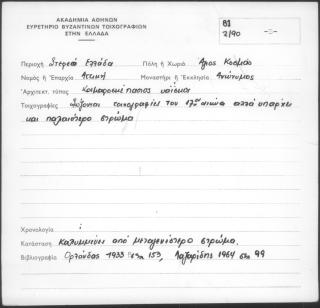 ΑΚΑΔΗΜΙΑ ΑΘΗΝΩΝ
ΕΥΡΕΤΗΡΙΟ ΒΥΖΑΝΤΙΝΩΝ ΤΟΙΧΟΓΡΑΦΙΩΝ
ΣΤΗΝ ΕΛΛΑΔΑ
2/90
Περιοχή Στερεά Ελλάδα Πόλη ή Χωριό Άγιος Κοσμάς
Νομός ή Ἐπαρχία Αττική Μοναστήρι ή Ἐκκλησία Ανώνυμος
Ἀρχιτεκτ. τύπος Κοιμητηριακός ναΐσκος
Τοιχογραφίες Σώζονται τοιχογραφίες του 17ου αιώνα αλλά υπάρχει
και παλαιότερο στρώμα
Χρονολογία :
Κατάσταση Καλυμμένη από μεταγενέστερο στρώμα.
Βιβλιογραφία Ορλάνδος 1933 σελ 153, Λαζαρίδης 1964 σελ 99